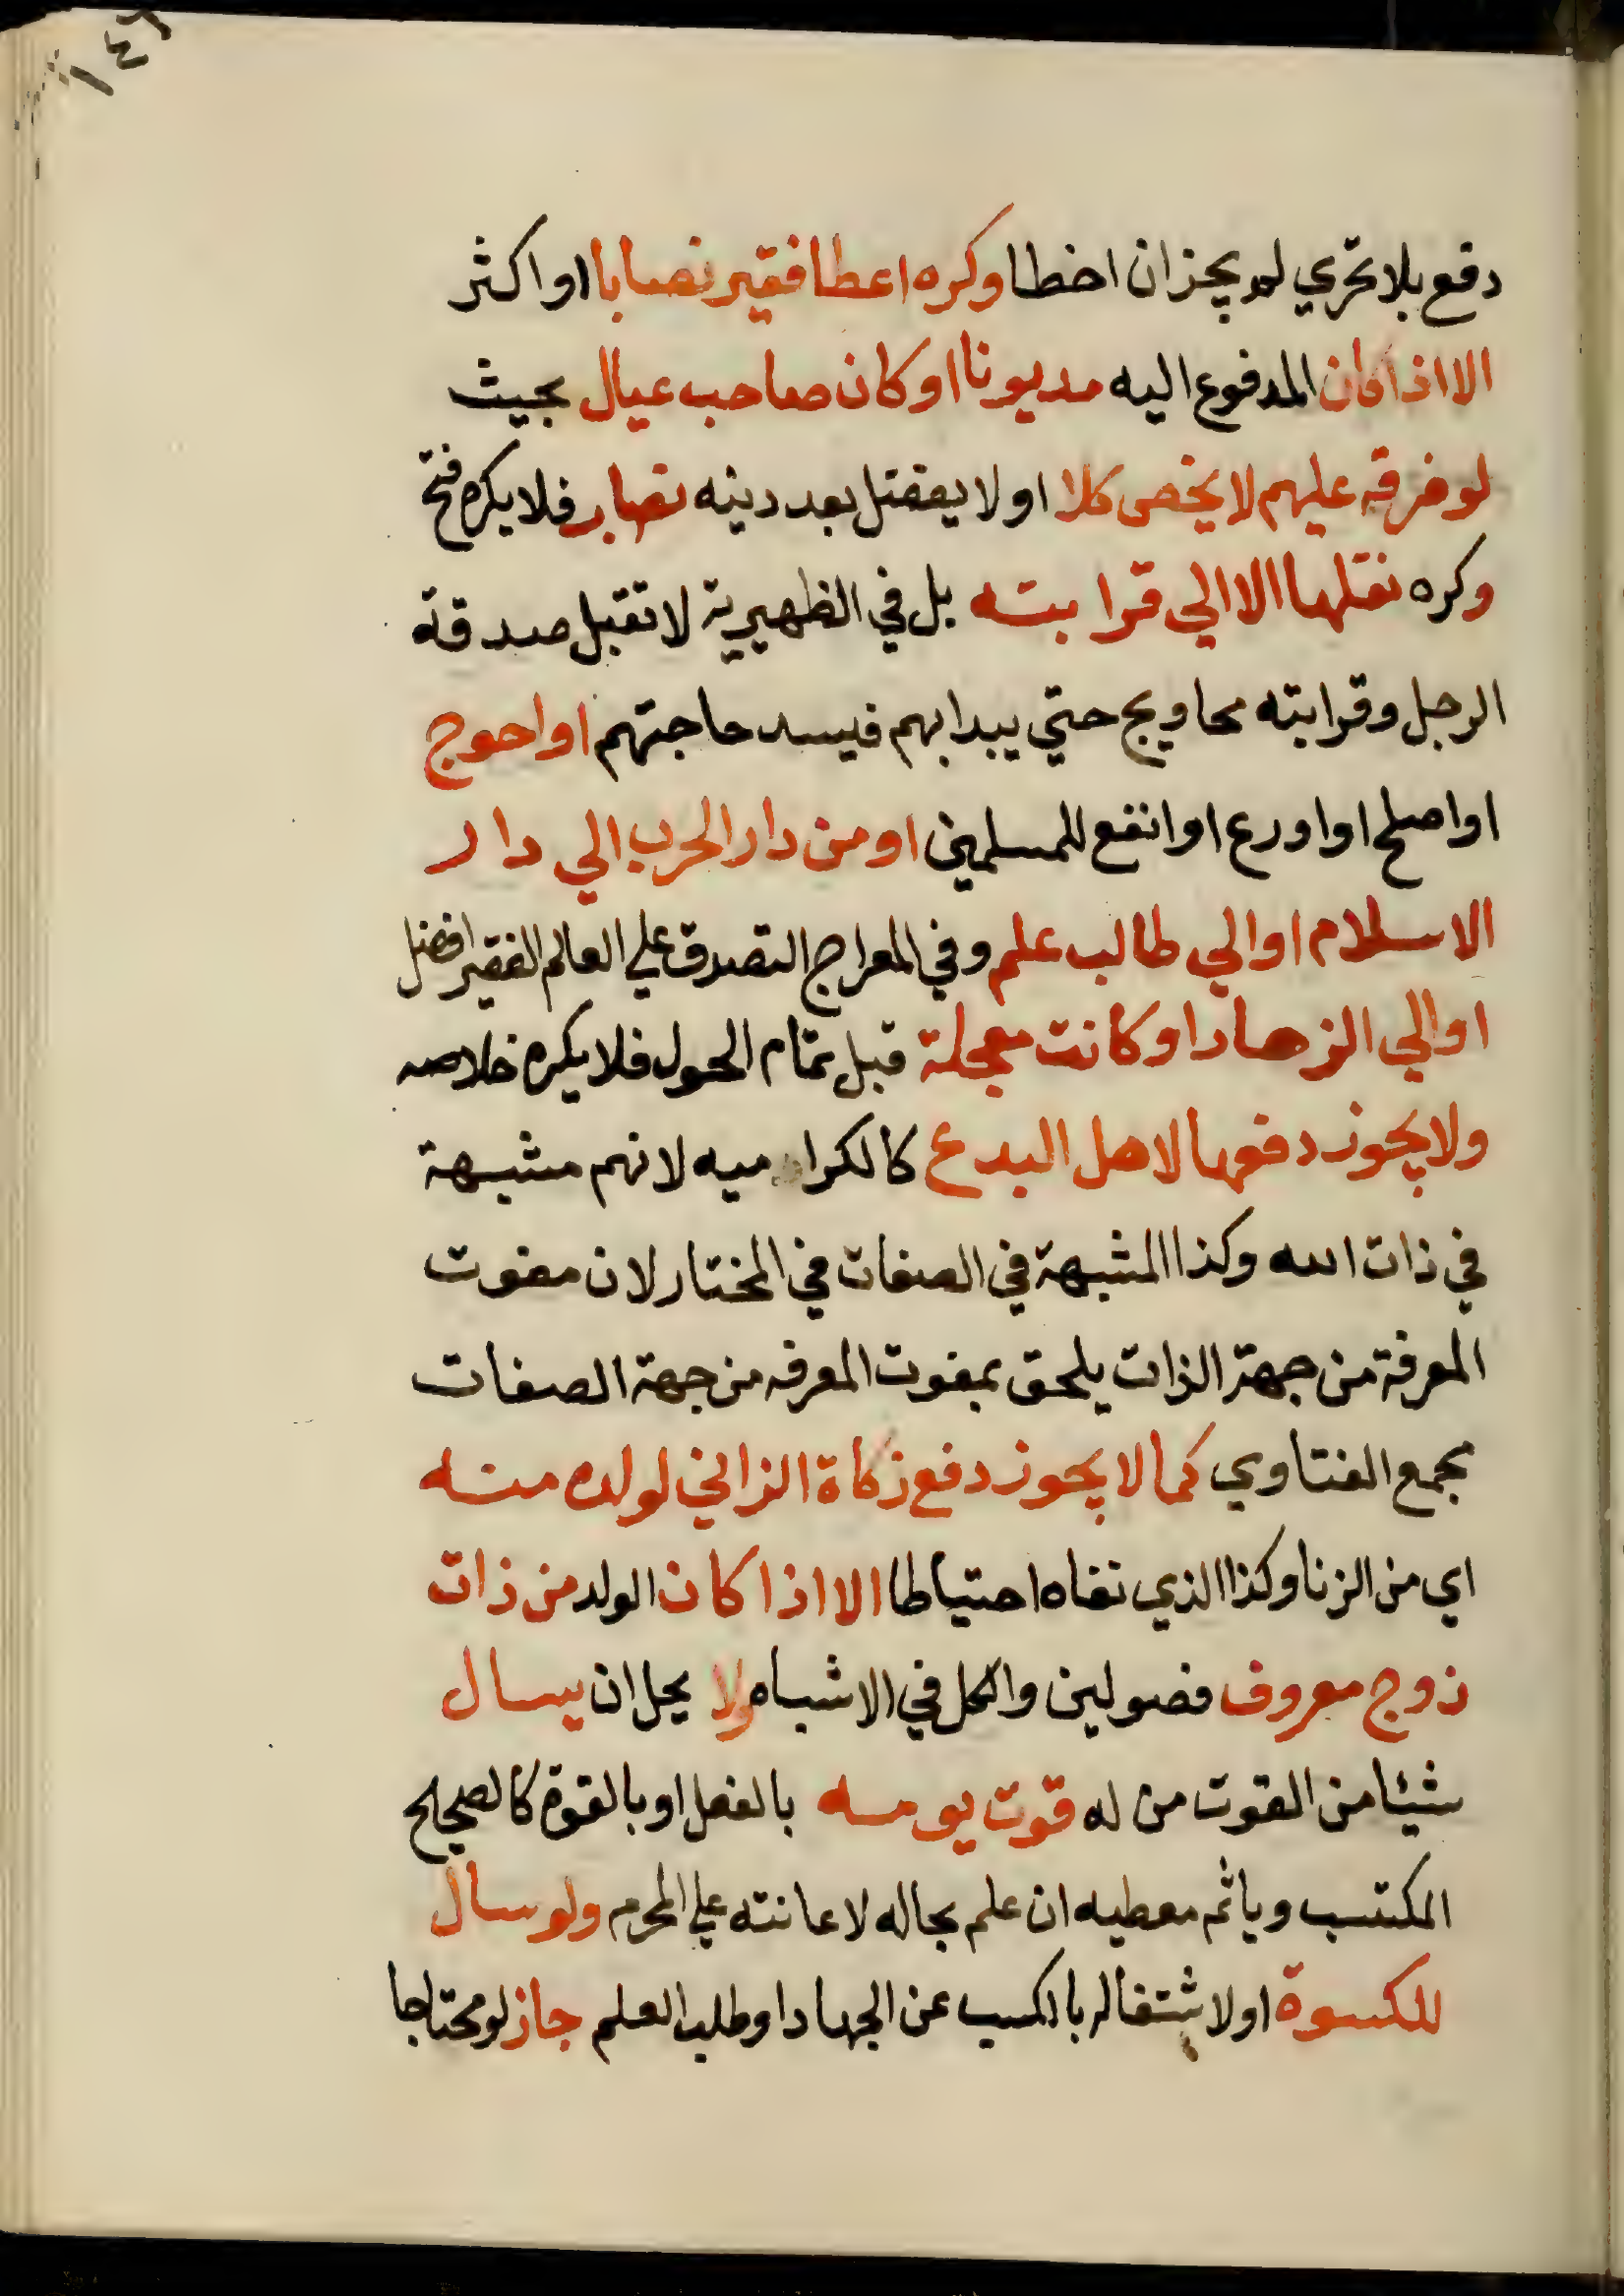 ١٤٦
دفع بلا تحري لم يجز ان اخطا وكره اعطا فقير نصابا او اكثر
الا اذا كان المدفوع اليه مديونا او كان صاحب عيال بحيث
لو فرقه عليهم لا يخص كلا او لا يفضل بعد دينه نصاب فلا يكره فتح
وكره نقلها الا الي قرابته بل في الظهيرية لا تقبل صدقة
الرجل وقرابته محاويج حتي يبدا بهم فيسد حاجتهم او احوج
او اصلح او اورع او انفع للمسلمين او من دار الحرب الي دار
الاسلام او الي طالب علم وفي المعراج التصدق علي العالم الفقير افضل
او الي الزهاد او كانت معجلة قبل تمام الحول فلا يكره خلاصه
ولا يجوز دفعها لاهل البدع كالكراميه لانهم مشبهة
في ذات الله وكذا المشبهة في الصفات في المختار لان مفوت
المعرفة من جهة الذات يلحق بمفوت المعرفه من جهة الصفات
مجمع الفتاوي كما لا يجوز دفع زكاة الزاني لولده منه
اي من الزنا وكذا الذي نفاه احتياطا الا اذا كان الولد من ذات
زوج معروف فصولين والكل في الاشباه ولا يحل ان يسال
شيئا من القوت من له قوت يومه بالفعل او بالقوة كالصحيح
المكتسب وياثم معطيه ان علم بحاله لاعانته علي المحرم ولو سال
للكسوة او لاشتغاله بالكسب عن الجهاد او طلب العلم جاز لو محتاجا